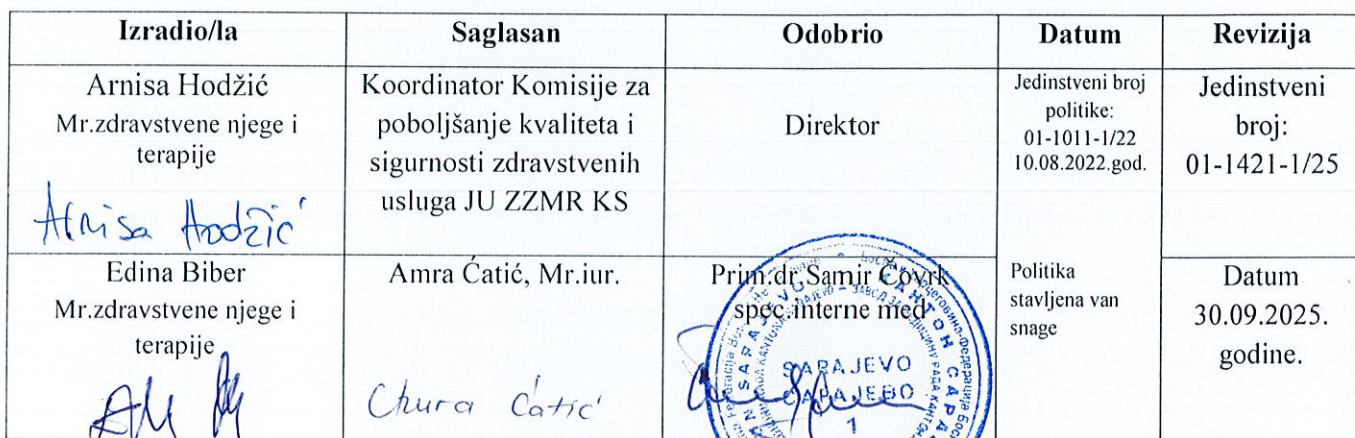 Izradio/la
Saglasan
Odobrio
Datum
Revizija
Arnisa Hodžić
Mr.zdravstvene njege i
terapije
Arnisa Hodžić
Koordinator Komisije za
poboljšanje kvaliteta i
sigurnosti zdravstvenih
usluga JU ZZMR KS
Direktor
Jedinstveni broj
politike:
01-1011-1/22
10.08.2022.god.
Jedinstveni
broj:
01-1421-1/25
Edina Biber
Mr.zdravstvene njege i
terapije
Amra Ćatić, Mr.iur.
Ćatić
Prim.dr.Samir Čovrk
spec.interne med
SARAJEVO
САРАЈЕВО
1
Politika
stavljena van
snage
Datum
30.09.2025.
godine.